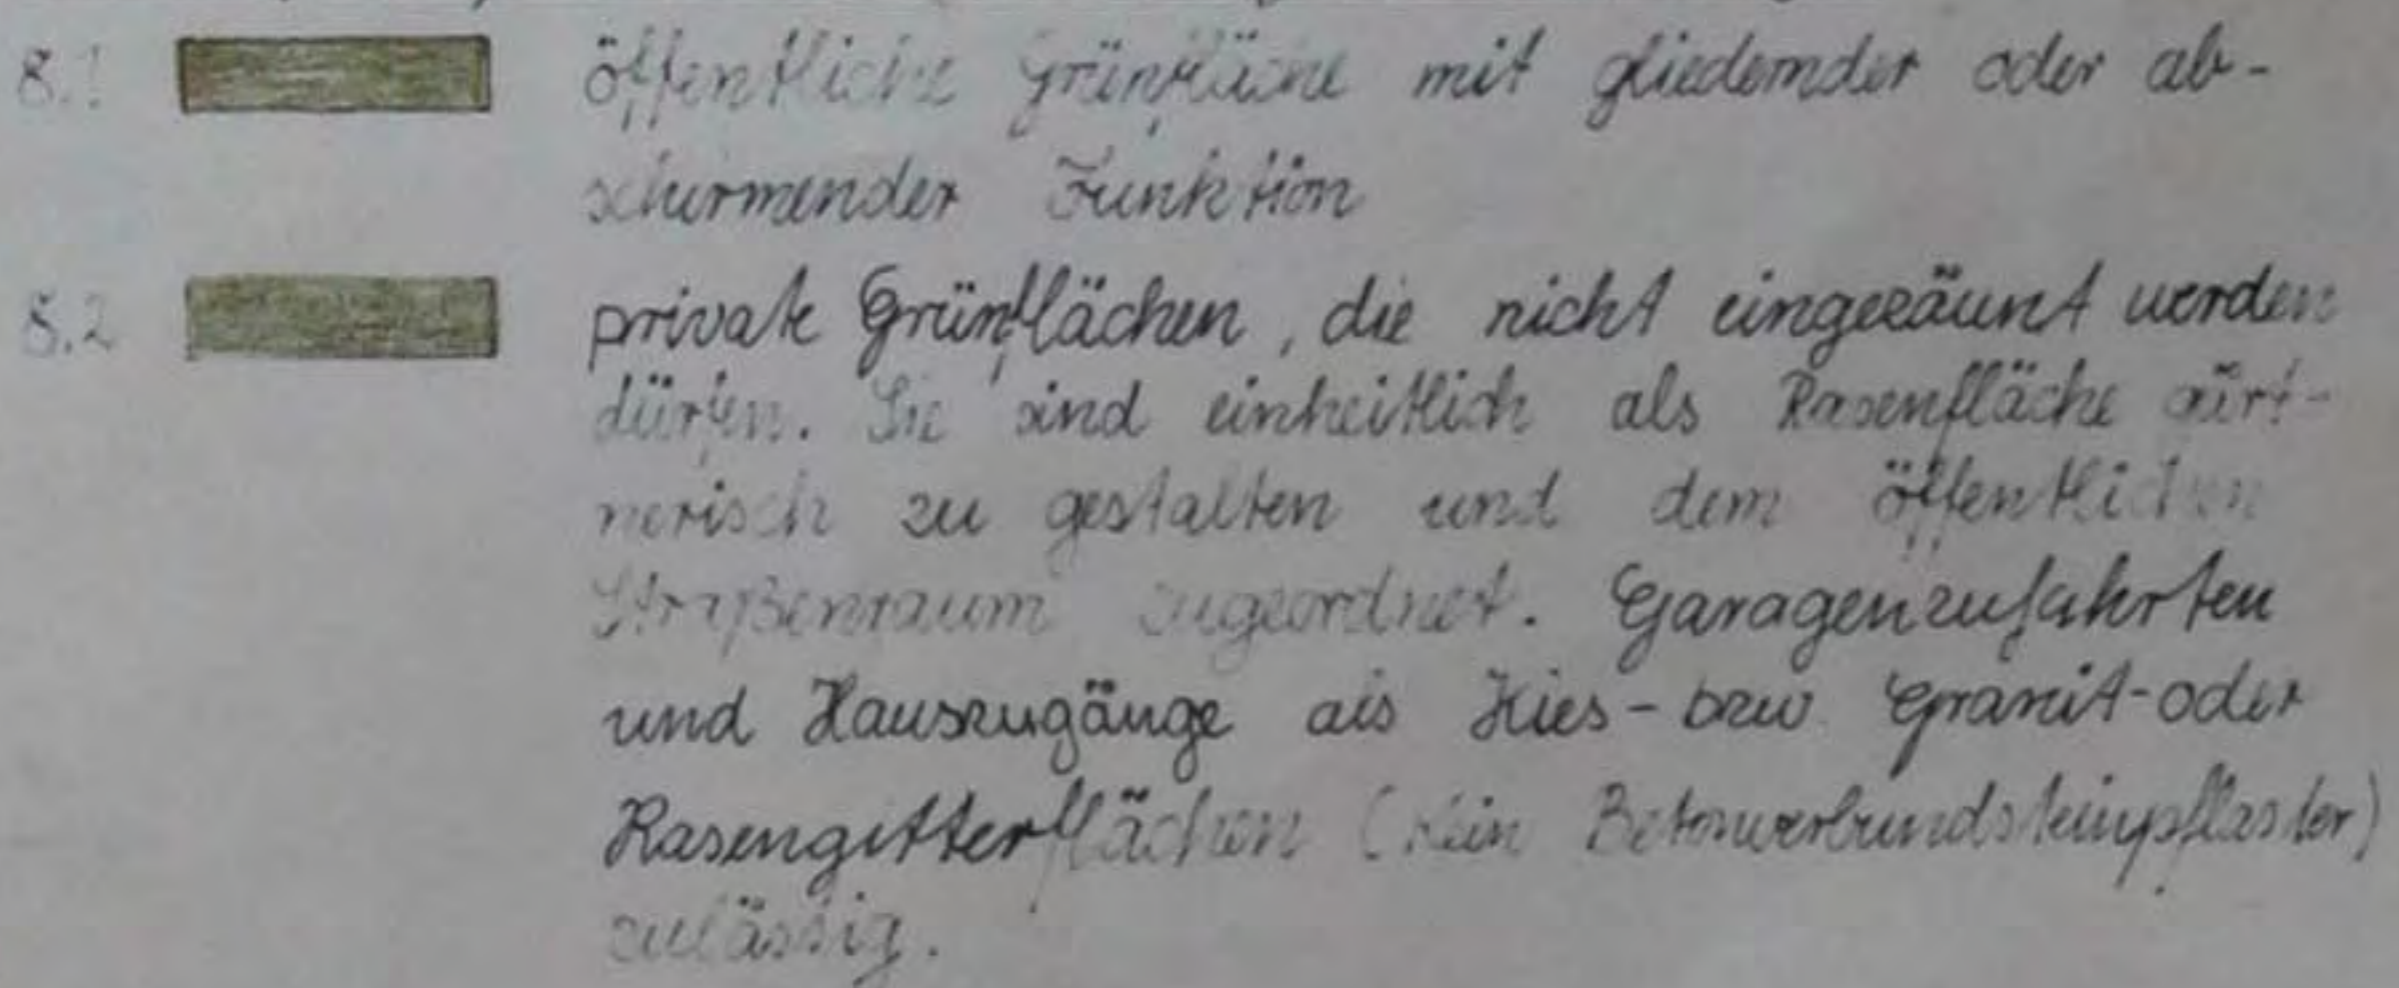 8.1 öffentliche Grünfläche mit gliedernder oder ab-
schirmender Funktion
8.2 private Grünflächen, die nicht eingezäunt werden
dürfen. Sie sind einheitlich als Rasenfläche gärt-
nerisch zu gestalten und dem öffentlichen
Straßenraum zugeordnet. Garagenzufahrten
und Hauszugänge als Kies- bzw Granit- oder
Rasengitterflächen (kein Betonverbundsteinpflaster)
zulässig.